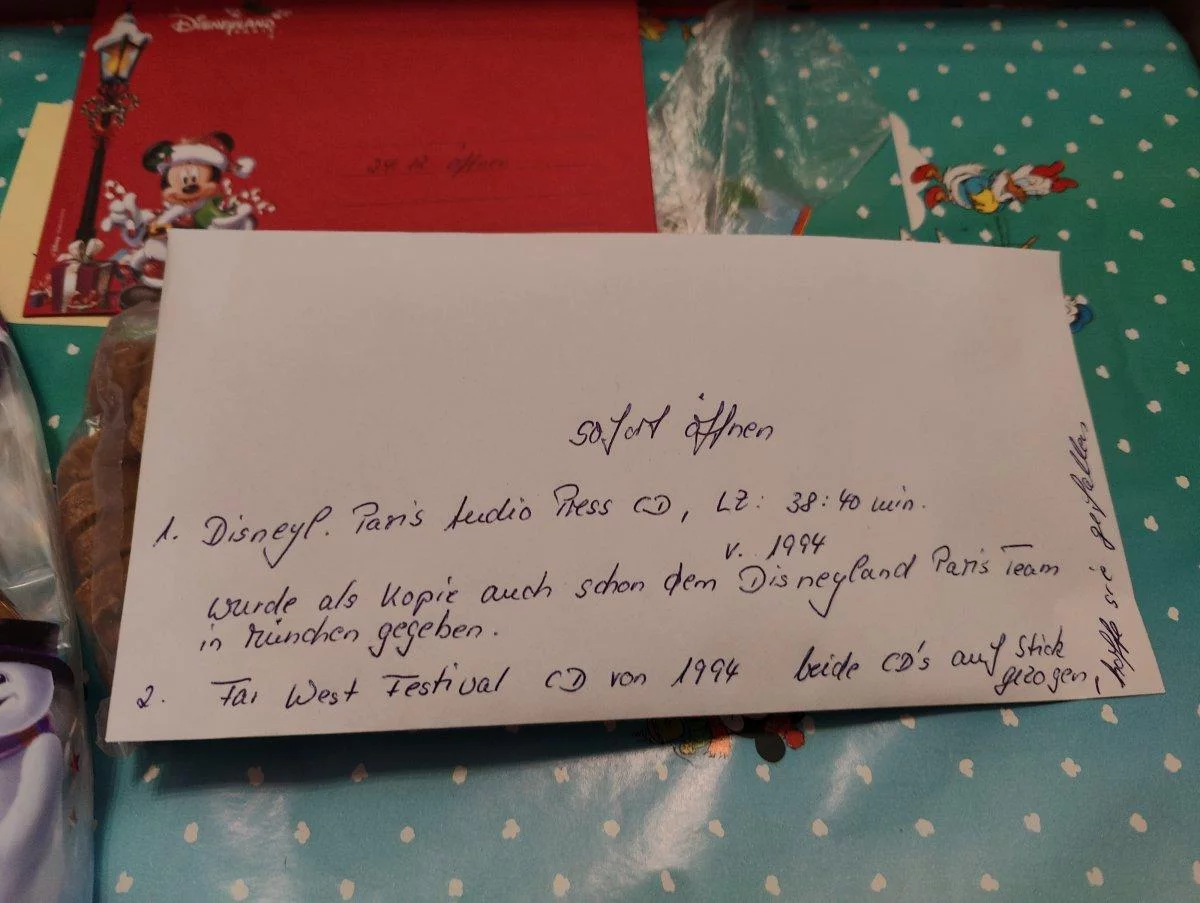 DISNEYLAND
PARIS
24 12 öffnen
sofort öffnen
1. Disneyl. Paris Audio Press CD, LZ: 38:40 min.
v. 1994
wurde als Kopie auch schon dem Disneyland Paris Team
in München gegeben.
2. Far West Festival CD von 1994 beide CD's auf Stick
gezogen,
hoffe sie gefallen